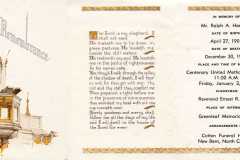 Remembrance
The Lord is my shepherd; I
shall not want.
He maketh me to lie down in
green pastures; He leadeth me
beside the still waters.
He restoreth my soul; He leadeth me
in the paths of righteousness
for his names sake.
Yea, though I walk through the valley
of the shadow of death, I will
fear no evil; for thou art with me; Thy
rod and thy staff they comfort me
Thou preparest a table before
me in the presence of mine enemies; Thou
anointest my head with oil
my cup runneth over.
Surely goodness and mercy shall
follow me all the days of my life,
and I will dwell in the house of
the Lord for ever
IN MEMORY OF
Mr. Ralph A.
DATE OF BIRTH
April 27, 19
DATE OF DEATH
December 30,
PLACE AND TIME OF
Centenary United Meth
11:00 A.M.
Friday, January 2,
Reverend Ernest R.
PLACE OF
Greenleaf Memorial
ARRANGEMENTS
Cotten Funeral H
New Bern, North C